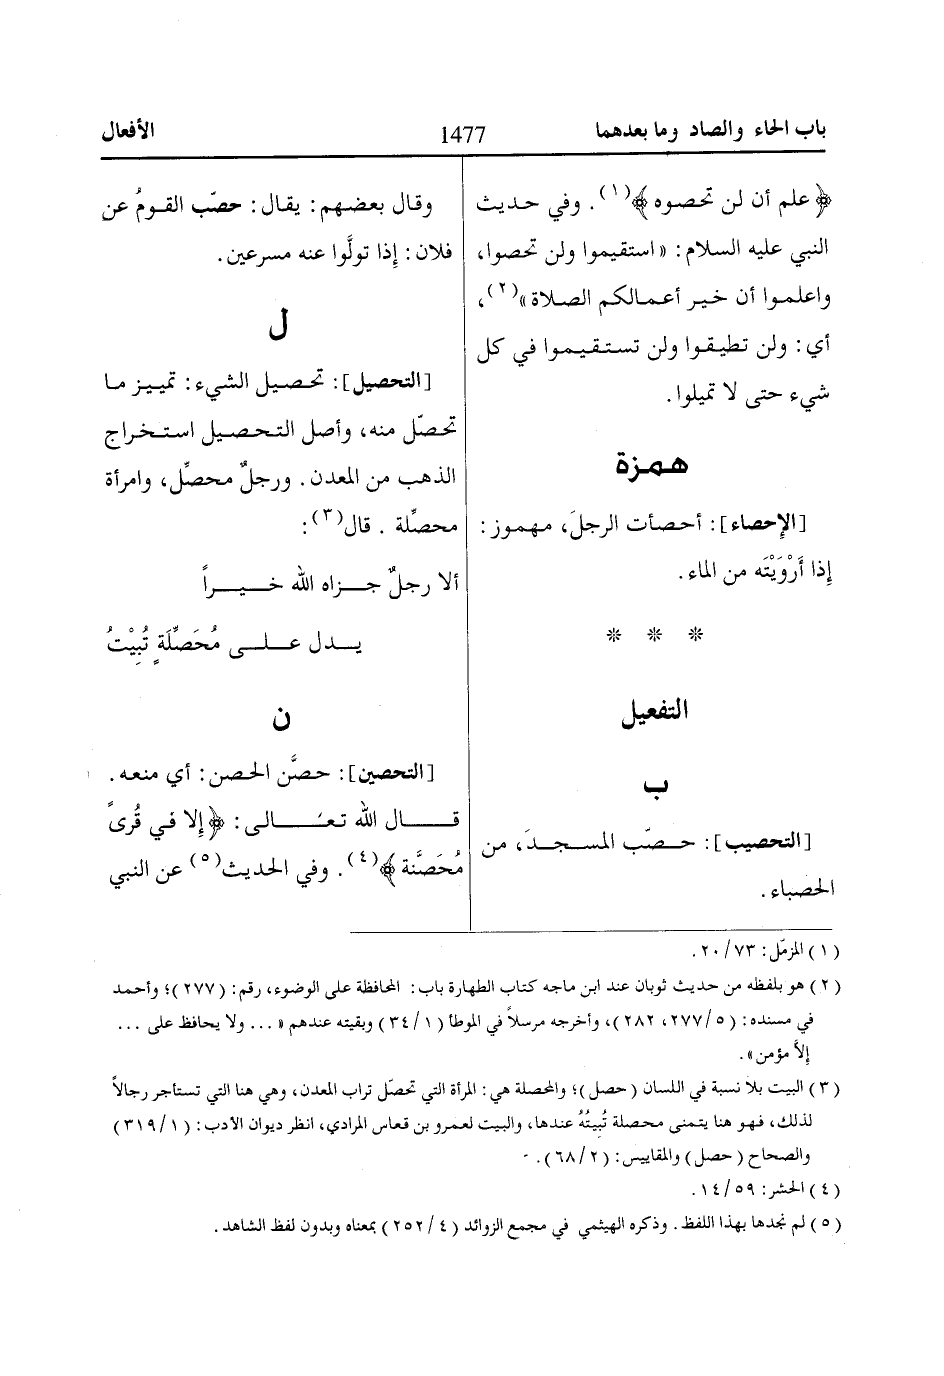 باب الحاء والصاد وما بعدهما
1477
الأفعال
﴿علم أن لن تحصوه﴾(١). وفي حديث
النبي عليه السلام: «استقيموا ولن تحصوا،
واعلموا أن خير أعمالكم الصلاة»(٢)،
أي: ولن تطيقوا ولن تستقيموا في كل
شيء حتى لا تميلوا.
همزة
[الإحصاء]: أحصأت الرجلَ، مهموز:
إذا أَرْوَيْتَه من الماء.
* * *
التفعيل
ب
[التحصيب]: حصّب المسجدَ، من
الحصباء.
وقال بعضهم: يقال: حصّب القومُ عن
فلان: إذا تولَّوا عنه مسرعين.
ل
[التحصيل]: تحصيل الشيء: تمييز ما
تحصّل منه، وأصل التحصيل استخراج
الذهب من المعدن. ورجلٌ محصِّل، وامرأة
محصِّلة. قال(٣):
ألا رجلٌ جزاه الله خيراً
يدل على مُحَصِّلَةٍ تُبِيْتُ
ن
[التحصين]: حصَّن الحصن: أي منعه.
قال الله تعالى: ﴿إلا في قُرىً
مُحَصَّنة﴾(٤). وفي الحديث(٥) عن النبي
(١) المزمّل: ٧٣/ ٢٠.
(٢) هو بلفظه من حديث ثوبان عند ابن ماجه كتاب الطهارة باب: المحافظة على الوضوء، رقم: (٢٧٧)؛ وأحمد
في مسنده: (٥/ ٢٧٧، ٢٨٢)، وأخرجه مرسلاً في الموطأ (١/ ٣٤) وبقيته عندهم «... ولا يحافظ على ...
إلاَّ مؤمن».
(٣) البيت بلا نسبة في اللسان (حصل)؛ والمحصلة هي: المرأة التي تحصّل تراب المعدن، وهي هنا التي تستأجر رجالاً
لذلك، فهو هنا يتمنى محصلة تُبِيتُهُ عندها، والبيت لعمرو بن قعاس المرادي، انظر ديوان الأدب: (١/ ٣١٩)
والصحاح (حصل) والمقاييس: (٢/ ٦٨).
(٤) الحشر: ٥٩/ ١٤.
(٥) لم نجدها بهذا اللفظ. وذكره الهيثمي في مجمع الزوائد (٤/ ٢٥٢) بمعناه وبدون لفظ الشاهد.